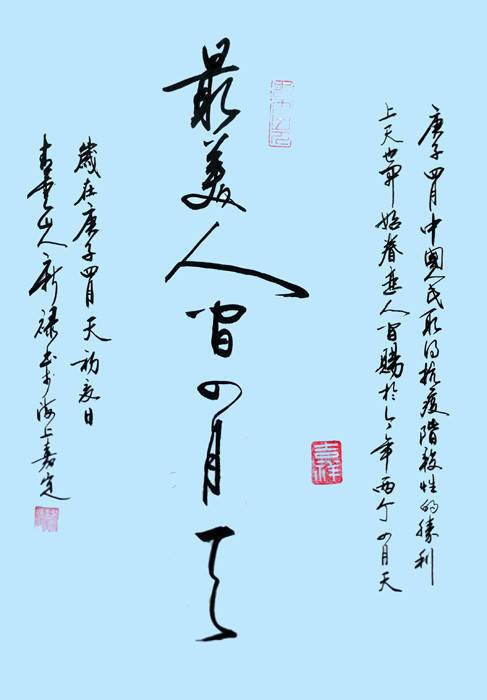 庚子四月中國人民取得抗疫階段性的勝利
上天也開始眷垂人間賜於今年兩个四月天
吉祥
最美人間四月天
歲在庚子四月天初夏日
山人新祿書於海上嘉定